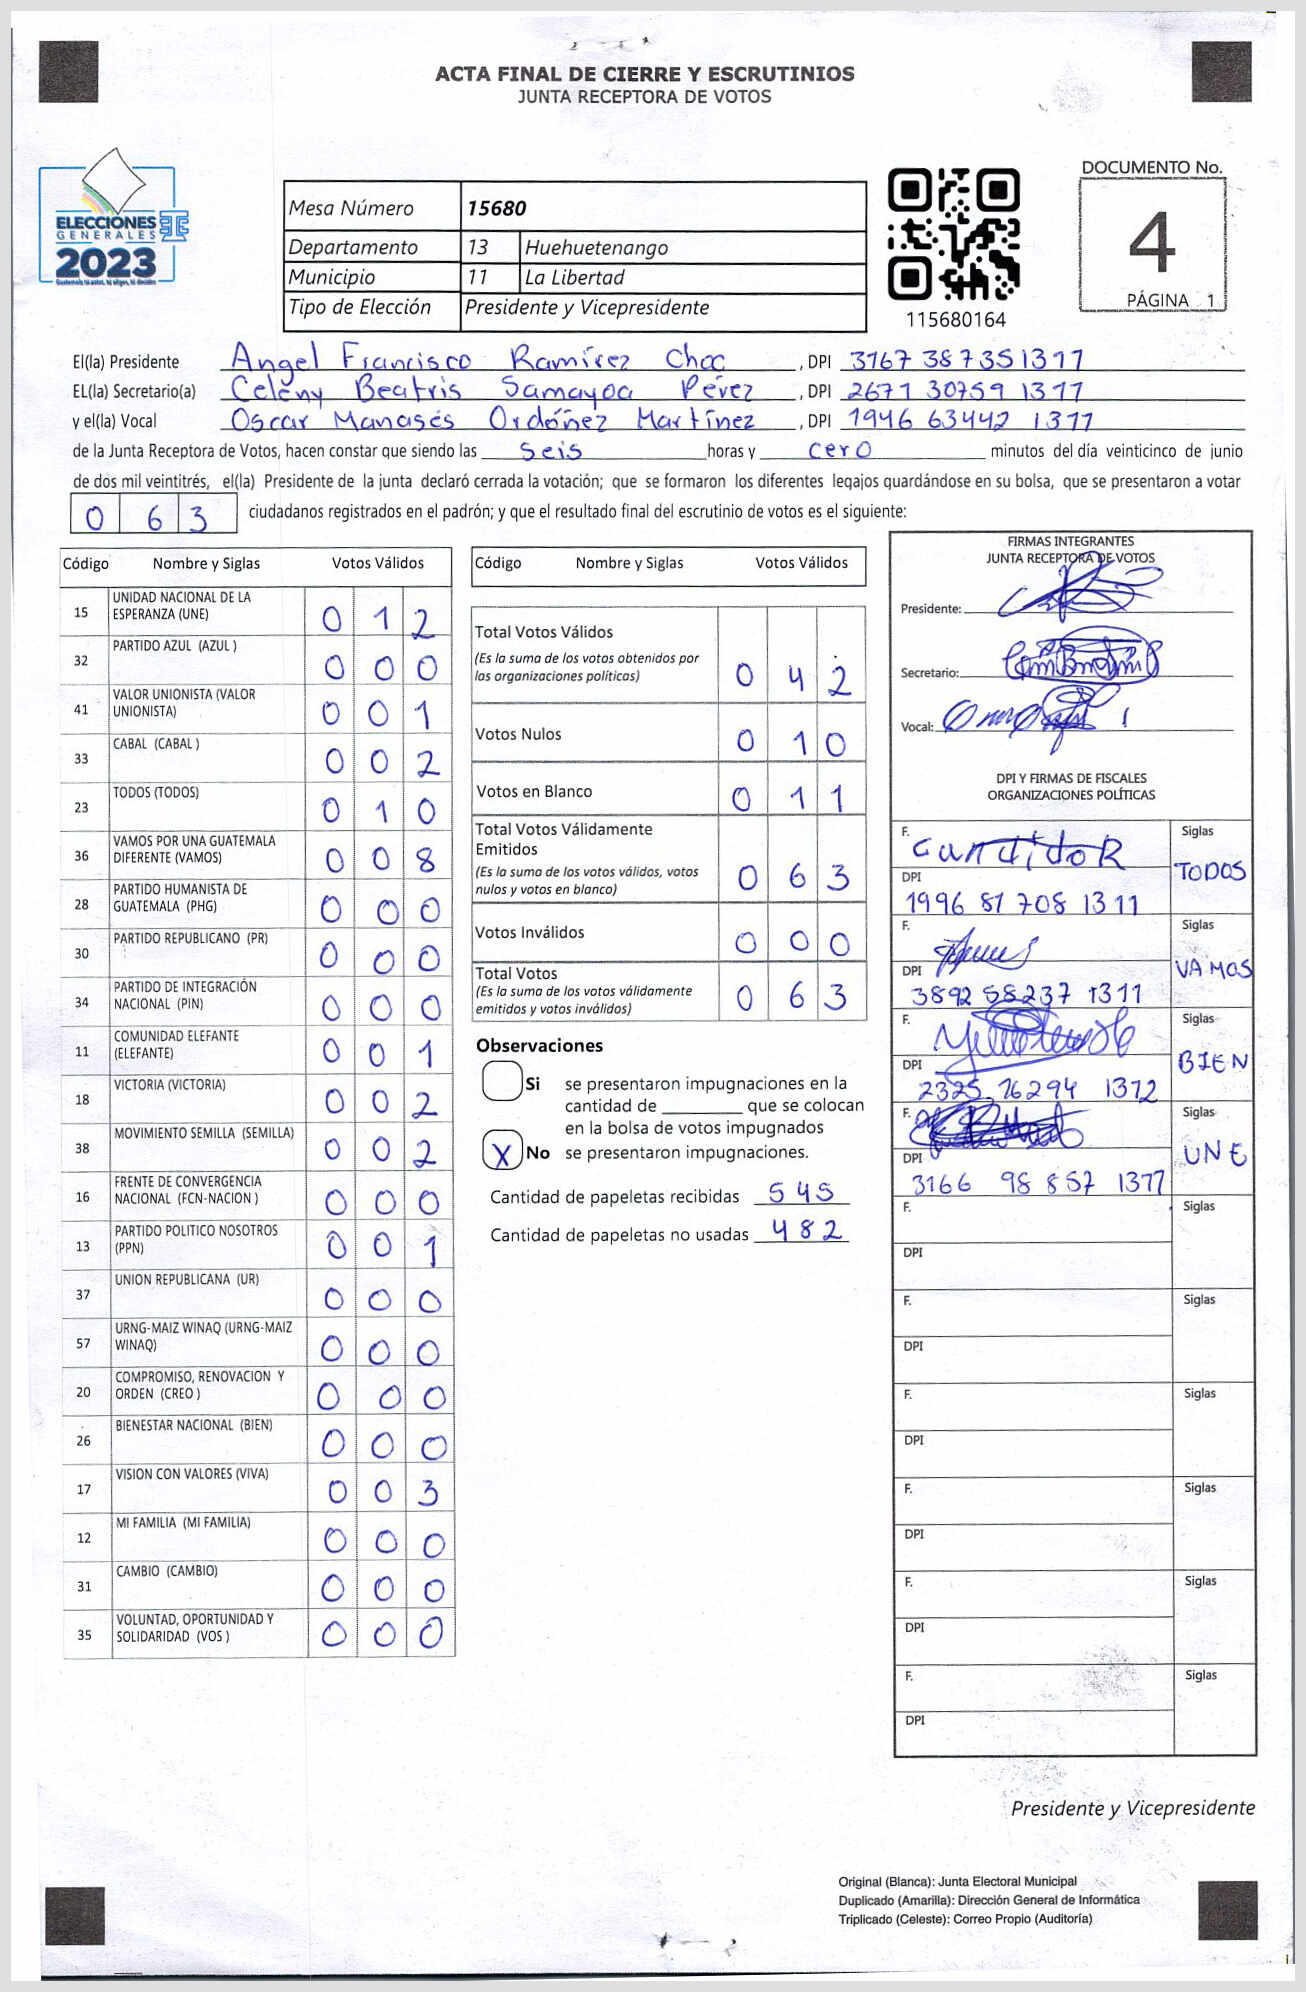 ACTA FINAL DE CIERRE Y ESCRUTINIOS
JUNTA RECEPTORA DE VOTOS
ELECCIONES
GENERALES
2023
Mesa Número 15680
Departamento 13 Huehuetenango
Municipio 11 La Libertad
Tipo de Elección Presidente y Vicepresidente
115680164
DOCUMENTO No.
4
PÁGINA 1
El(la) Presidente Angel Francisco Ramírez Choc , DPI 3167 38735 1317
EL(la) Secretario(a) Celeny Beatris Samayoa Pérez , DPI 2671 30759 1317
y el(la) Vocal Oscar Manasés Ordóñez Martínez , DPI 1946 63442 1311
de la Junta Receptora de Votos, hacen constar que siendo las seis horas y cero minutos del día veinticinco de junio
de dos mil veintitrés, el(la) Presidente de la junta declaró cerrada la votación; que se formaron los diferentes legajos guardándose en su bolsa, que se presentaron a votar
0 6 3 ciudadanos registrados en el padrón; y que el resultado final del escrutinio de votos es el siguiente:
Código Nombre y Siglas Votos Válidos
15 UNIDAD NACIONAL DE LA ESPERANZA (UNE) 0 1 2
32 PARTIDO AZUL (AZUL ) 0 0 0
41 VALOR UNIONISTA (VALOR UNIONISTA) 0 0 1
33 CABAL (CABAL ) 0 0 2
23 TODOS (TODOS) 0 1 0
36 VAMOS POR UNA GUATEMALA DIFERENTE (VAMOS) 0 0 8
28 PARTIDO HUMANISTA DE GUATEMALA (PHG) 0 0 0
30 PARTIDO REPUBLICANO (PR) 0 0 0
34 PARTIDO DE INTEGRACIÓN NACIONAL (PIN) 0 0 0
11 COMUNIDAD ELEFANTE (ELEFANTE) 0 0 1
18 VICTORIA (VICTORIA) 0 0 2
38 MOVIMIENTO SEMILLA (SEMILLA) 0 0 2
16 FRENTE DE CONVERGENCIA NACIONAL (FCN-NACION ) 0 0 0
13 PARTIDO POLITICO NOSOTROS (PPN) 0 0 1
37 UNION REPUBLICANA (UR) 0 0 0
57 URNG-MAIZ WINAQ (URNG-MAIZ WINAQ) 0 0 0
20 COMPROMISO, RENOVACION Y ORDEN (CREO ) 0 0 0
26 BIENESTAR NACIONAL (BIEN) 0 0 0
17 VISION CON VALORES (VIVA) 0 0 3
12 MI FAMILIA (MI FAMILIA) 0 0 0
31 CAMBIO (CAMBIO) 0 0 0
35 VOLUNTAD, OPORTUNIDAD Y SOLIDARIDAD (VOS ) 0 0 0
Código Nombre y Siglas Votos Válidos
Total Votos Válidos
(Es la suma de los votos obtenidos por
las organizaciones políticas) 0 4 2
Votos Nulos 0 1 0
Votos en Blanco 0 1 1
Total Votos Válidamente
Emitidos
(Es la suma de los votos válidos, votos
nulos y votos en blanco) 0 6 3
Votos Inválidos 0 0 0
Total Votos
(Es la suma de los votos válidamente
emitidos y votos inválidos) 0 6 3
Observaciones
Si se presentaron impugnaciones en la
cantidad de ________ que se colocan
en la bolsa de votos impugnados
X No se presentaron impugnaciones.
Cantidad de papeletas recibidas 545
Cantidad de papeletas no usadas 482
FIRMAS INTEGRANTES
JUNTA RECEPTORA DE VOTOS
Presidente:
Secretario:
Vocal:
DPI Y FIRMAS DE FISCALES
ORGANIZACIONES POLÍTICAS
F. Siglas
TODOS
DPI
1996 81 708 1311
F. Siglas
VAMOS
DPI
3892 58237 1311
F. Siglas
BIEN
DPI
2325 76294 1312
F. Siglas
UNE
DPI
3166 98 857 1317
F. Siglas
DPI
F. Siglas
DPI
F. Siglas
DPI
F. Siglas
DPI
F. Siglas
DPI
F. Siglas
DPI
Presidente y Vicepresidente
Original (Blanca): Junta Electoral Municipal
Duplicado (Amarilla): Dirección General de Informática
Triplicado (Celeste): Correo Propio (Auditoría)